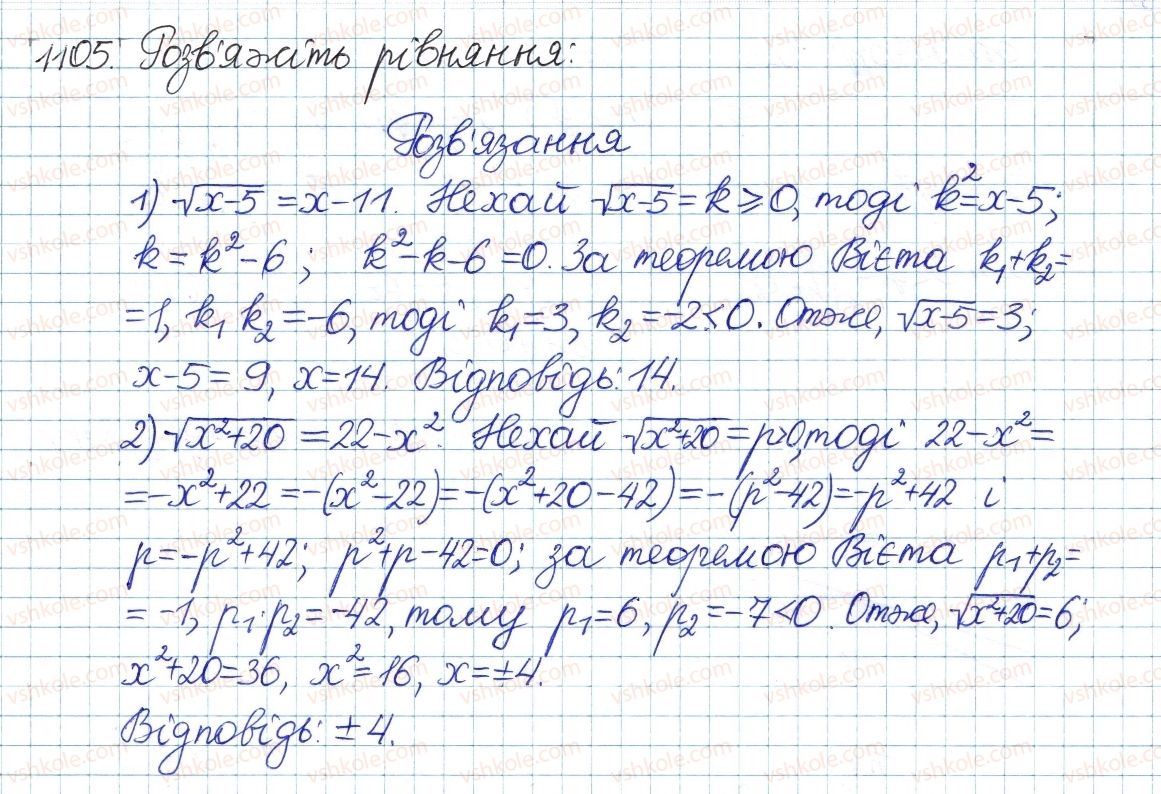 1105. Розв'яжіть рівняння:
Розв'язання
1) √x-5 = x-11. Нехай √x-5 = k ⩾ 0, тоді k²=x-5;
k = k²-6; k²-k-6=0. За теоремою Вієта k₁+k₂=
=1, k₁ k₂=-6, тоді k₁=3, k₂=-2<0. Отже, √x-5=3;
x-5=9, x=14. Відповідь: 14.
2) √x²+20 = 22-x². Нехай √x²+20 = p≥0, тоді 22-x²=
=-x²+22=-(x²-22)=-(x²+20-42)=-(p²-42)=-p²+42 і
p=-p²+42; p²+p-42=0; за теоремою Вієта p₁+p₂=
=-1, p₁·p₂=-42, тому p₁=6, p₂=-7<0. Отже, √x²+20=6;
x²+20=36, x²=16, x=±4.
Відповідь: ±4.